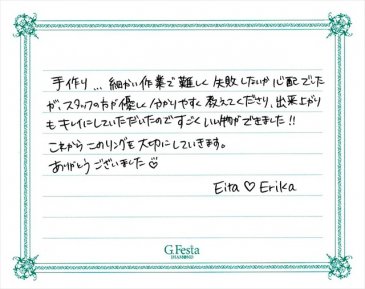 手作り... 細かい作業で難しく失敗しないか心配でした
が、スタッフの方が優しく分かりやすく教えてくださり、出来上がり
もキレイにしていただいたのですごくいい物ができました!!
これからこのリングを大切にしていきます。
ありがとうございました♡
Eita ♡ Erika
G.Festa
DIAMOND